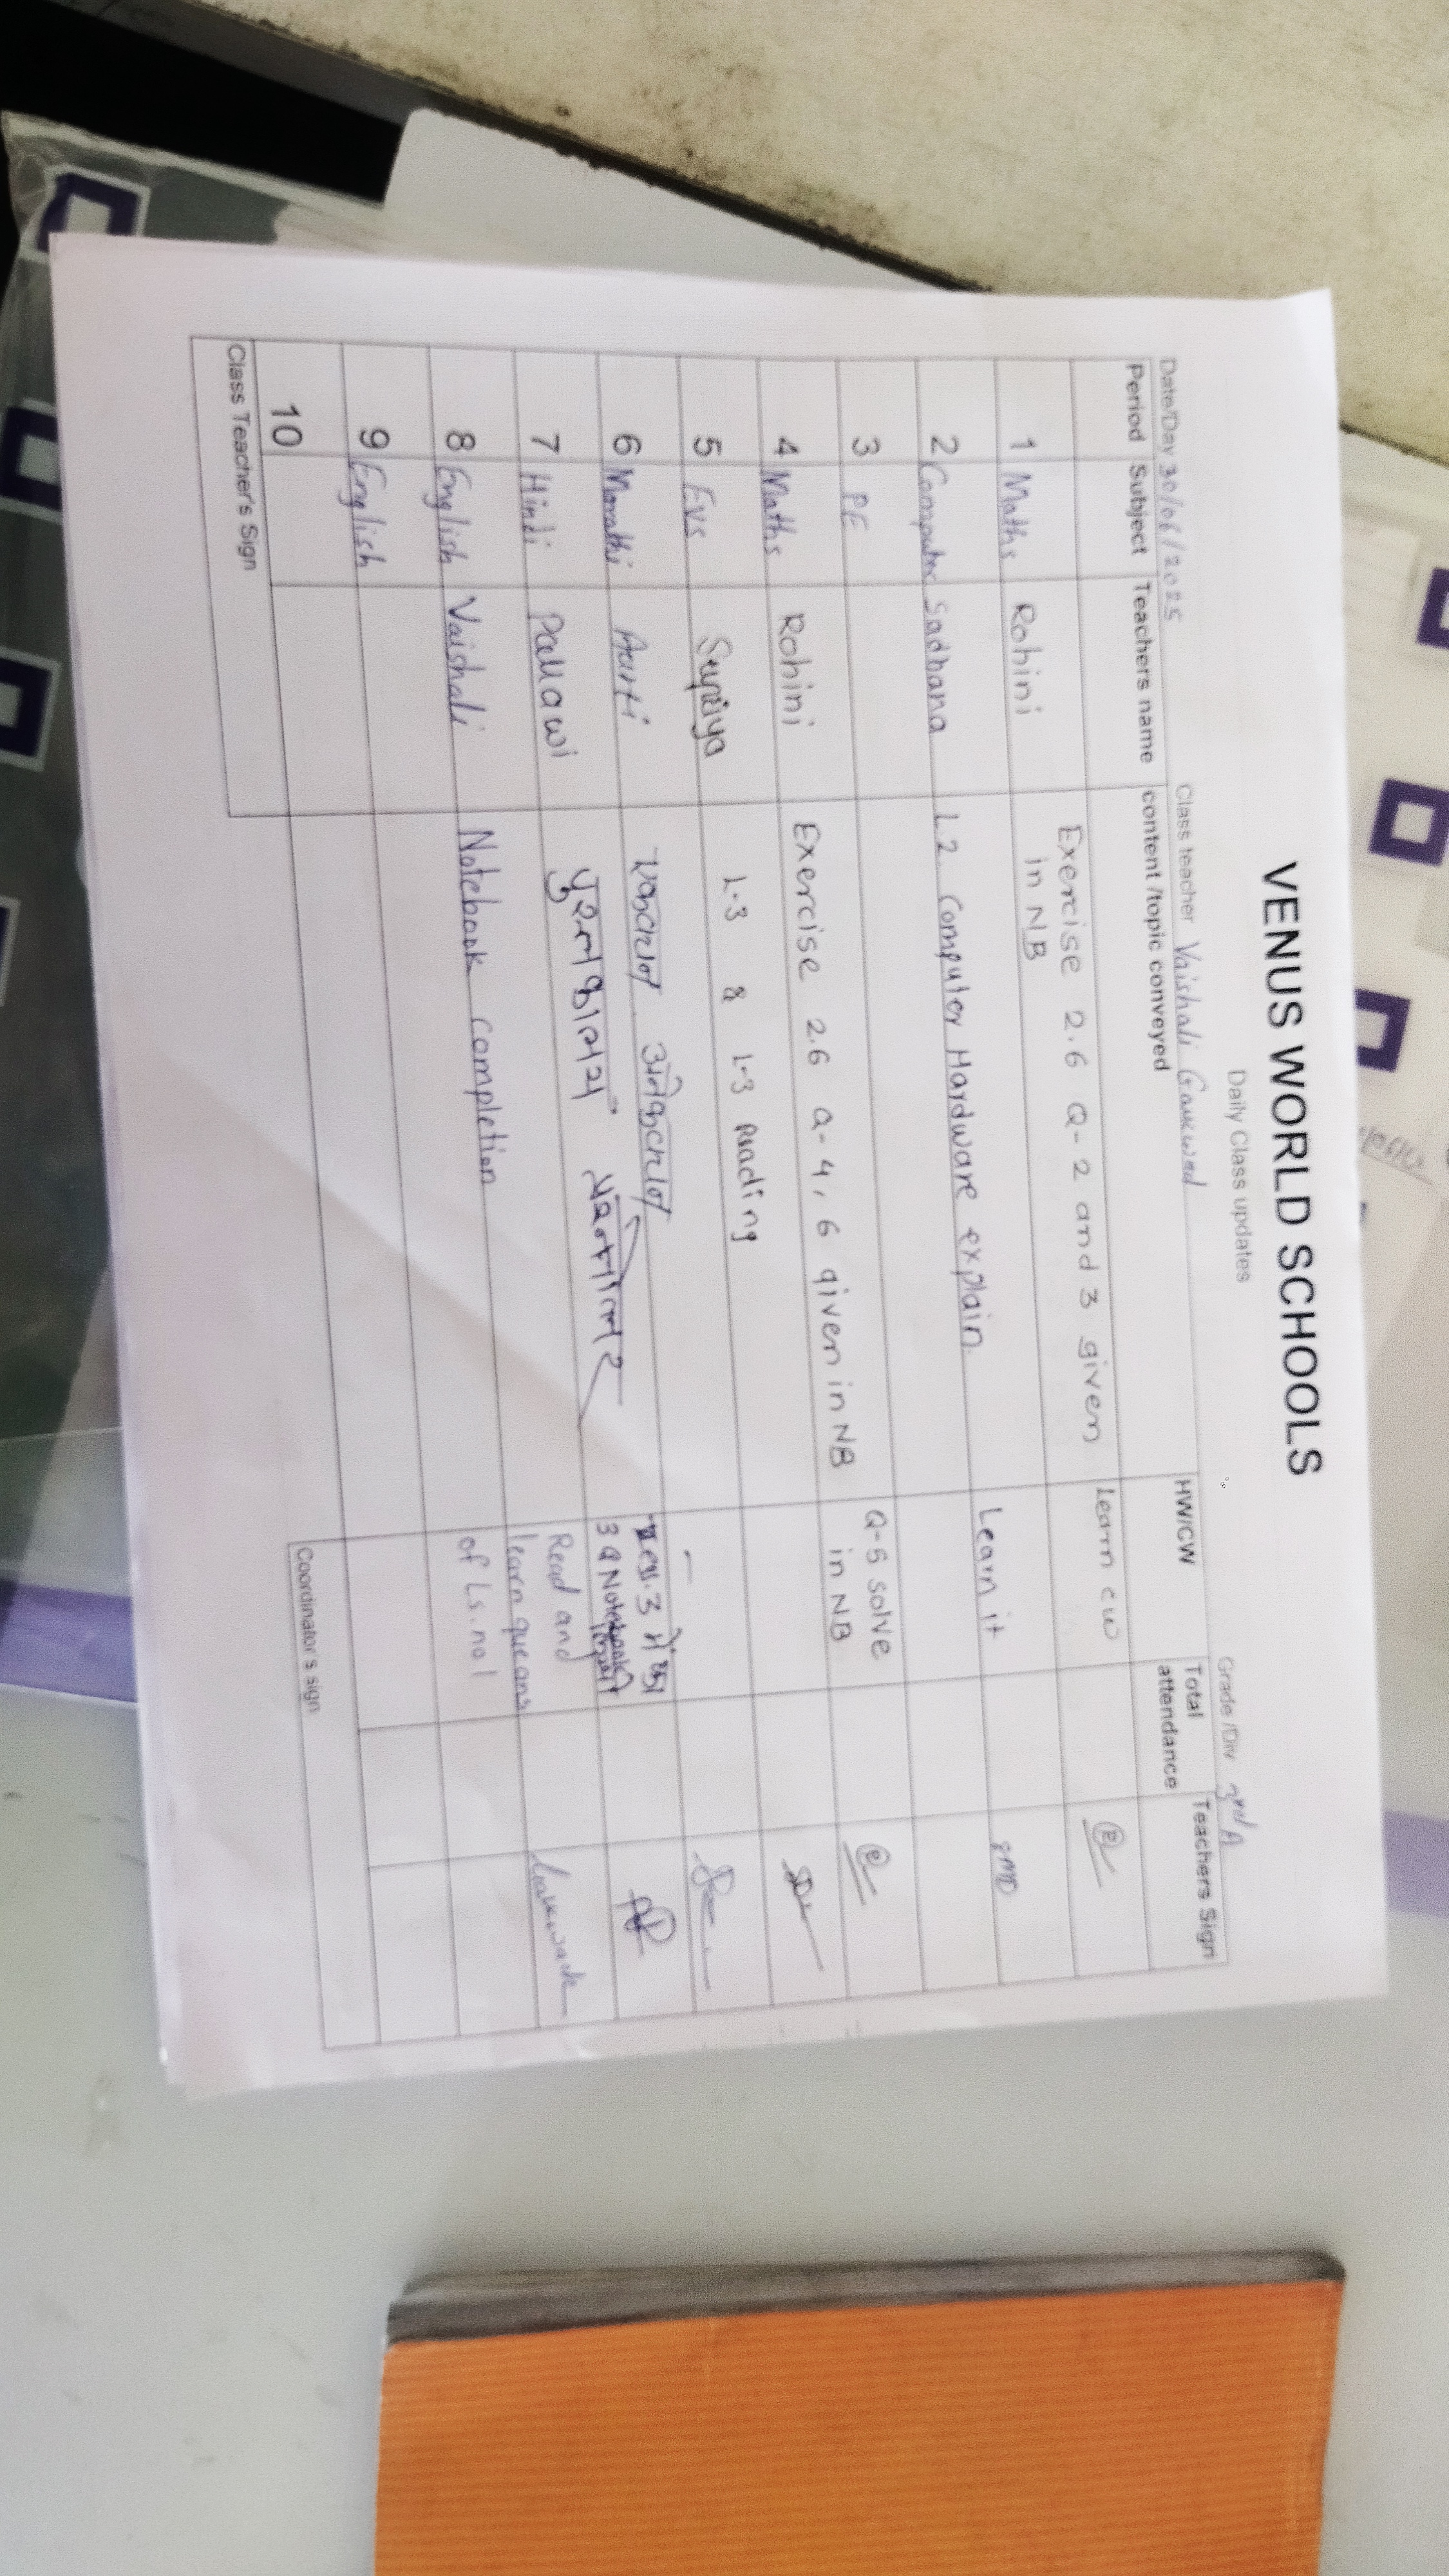 VENUS WORLD SCHOOLS
Daily Class updates
Date/Day 30/06/2025 Class teacher Vaishali Gaukwad Grade /Div 3rd A
Period Subject Teachers name content /topic conveyed HW/CW Total attendance Teachers Sign
1 Maths Rohini Exercise 2.6 Q-2 and 3 given in NB Learn cw
2 Computer Sadhana L.2. Computer Hardware explain. Learn it
3 PE
4 Maths Rohini Exercise 2.6 Q-4, 6 given in NB Q-5 solve in NB
5 Evs Supriya L-3 & L-3 Reading –
6 Marathi Aarti एकवचन अनेकवचन
7 Hindi Pallawi पुस्तकालय प्रश्नोत्तर 3 Q Notebook
8 English Vaishali Notebook completion Read and learn que ans of Ls. no 1
9 English
10
Class Teacher's Sign Coordinator s sign